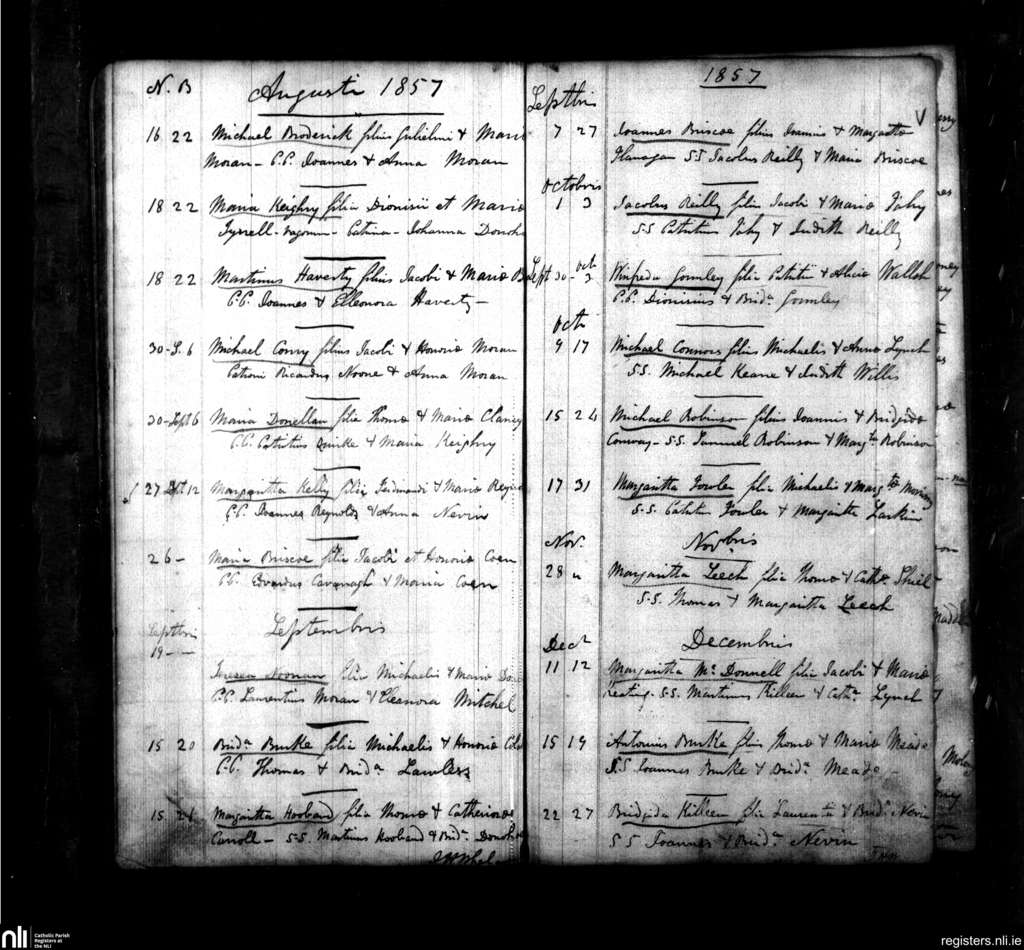 N. B Augusti 1857
16 22 Michael Broderick filius Gulielmi & Maria
Moran - C.C. Joannes & Anna Moran
18 22 Maria Keighry filia Dionisii et Maria
Tyrrell - Catrina - Johanna
18 22 Martinus Haverty filius Jacobi & Maria
C.C. Joannes & Elleonora Haverty -
30 - S. 6 Michael Conry filius Jacobi & Honoria Moran
Patrini Ricardus Noone & Anna Moran
30 - Sept 6 Maria Donellan filia Thoma & Maria Clancy
C.C. Patritius Burke & Maria Keighry
27 Sept 12 Margaritta Kelly filia Ferdinandi & Maria
C.C. Joannes Reynolds & Anna Nevin
26 - Maria Briscoe filia Jacobi et Honoria Coen
C.C. Edvardus Cavanagh & Maria Coen
Septbris Septembris
19 - -
Teresa Noonan filia Michaelis & Maria
C.C. Laurentius Moran & Eleanora Mitchel
15 20 Brid.a Burke filia Michaelis & Honoria
C.C. Thomas & Brid.a Lawless
15 26 Margaritta Hosband filia Thoma & Catherina
Carroll - S.S. Martinus Hosband & Brid.a
1857
Septbris
7 27 Joannes Briscoe filius Joannis & Margaritta
Flanagan S.S Jacobus Reilly & Maria Briscoe
Octobris
1 3 Jacobus Reilly filius Jacobi & Maria Fahy
S.S Patritius Fahy & Judith Reilly
Sept 30 - Oct 3 Winifreda Gormley filia Patritii & Alicia Walsh
C.C. Dionisius & Brid.a Gormley
Oct
9 17 Michael Connors filius Michaelis & Anna Lynch
S.S. Michael Keane & Judith Willis
15 24 Michael Robinson filius Joannis & Bridgida
Conway - S.S. Sammuel Robinson & Marg.ta Robinson
17 31 Margaritta Fowler filia Michaelis & Marg.ta
S.S. Patritius Fowler & Margaritta Larkin
Nov. Novbris
28 " Margaritta Leech filia Thoma & Cath.a Shiel
S.S. Thomas & Margaritta Leech
Dec.r Decembris
11 12 Margaritta Mc Donnell filia Jacobi & Maria
Keating - S.S. Martinus Killeen & Cath.a Lynch
15 19 Antonius Burke filius Thoma & Maria Meade
S.S Joannes Burke & Brid.a Meade
22 27 Bridgida Killeen filia Laurentii & Brid.a Nevin
S S Joannes & Brid.a Nevin
nli Catholic Parish
Registers at
the NLI
registers.nli.ie